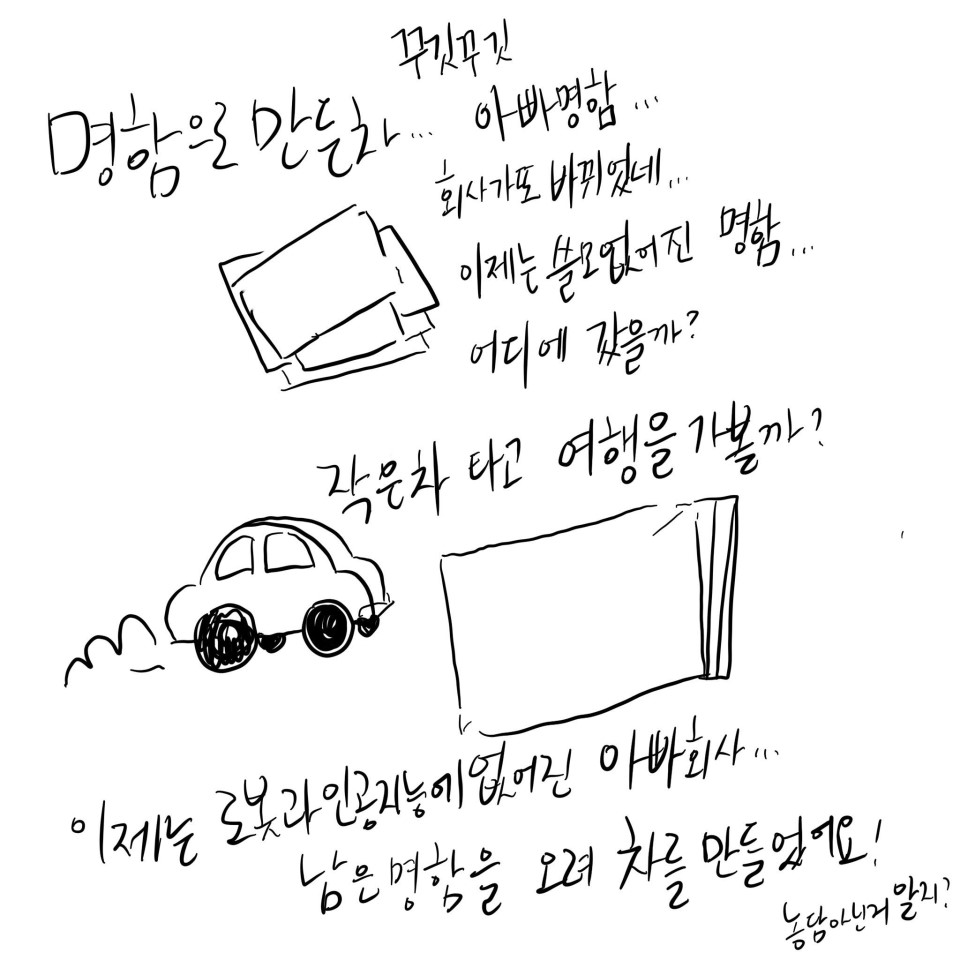 꾸깃꾸깃
명함으로 만든차...
아빠명함...
회사가또 바뀌었네...
이제는 쓸모없어진 명함...
어디에 갔을까?
작은차 타고 여행을 가볼까?
이제는 로봇과인공지능에없어진 아빠회사...
남은명함을 오려 차를 만들었어요!
농담아닌거 알지?